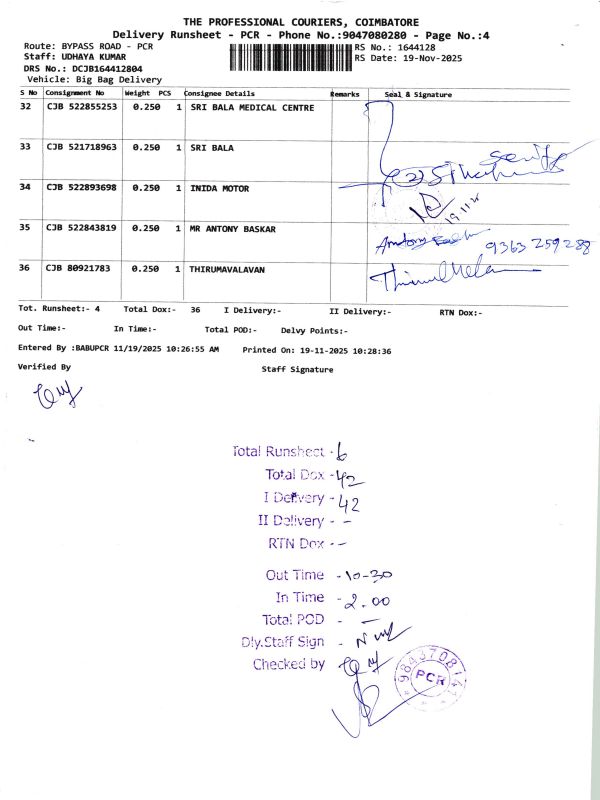 THE PROFESSIONAL COURIERS, COIMBATORE
Delivery Runsheet - PCR - Phone No.:9047080280 - Page No.:4
Route: BYPASS ROAD - PCR RS No.: 1644128
Staff: UDHAYA KUMAR RS Date: 19-Nov-2025
DRS No.: DCJB164412804
Vehicle: Big Bag Delivery
S No Consignment No Weight PCS Consignee Details Remarks Seal & Signature
32 CJB 522855253 0.250 1 SRI BALA MEDICAL CENTRE
33 CJB 521718963 0.250 1 SRI BALA
34 CJB 522893698 0.250 1 INIDA MOTOR
19.11.2
35 CJB 522843819 0.250 1 MR ANTONY BASKAR Antony 9363 259288
36 CJB 80921783 0.250 1 THIRUMAVALAVAN
Tot. Runsheet:- 4 Total Dox:- 36 I Delivery:- II Delivery:- RTN Dox:-
Out Time:- In Time:- Total POD:- Delvy Points:-
Entered By :BABUPCR 11/19/2025 10:26:55 AM Printed On: 19-11-2025 10:28:36
Verified By Staff Signature
Total Runsheet - 6
Total Dox - 42
I Delivery - 42
II Delivery - -
RTN Dox - -
Out Time - 10-30
In Time - 2.00
Total POD - —
Dly.Staff Sign -
Checked by
PCR